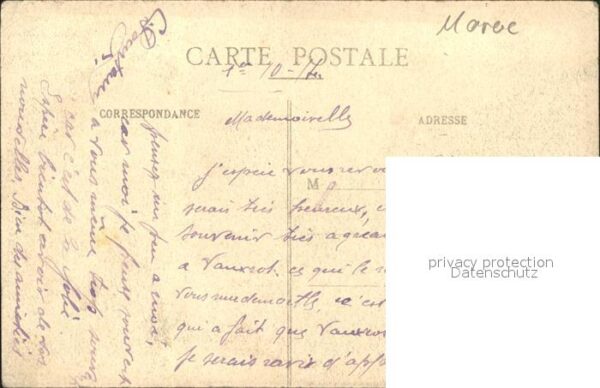 Maroc
CARTE POSTALE
1er 10-
CORRESPONDANCE
ADRESSE
Mademoiselle
J'espère vous rev
M
serais très heureux,
souvenir très agréa
a Vauxrot. ce qui le
vous mademoiselle, c'est
qui a fait que Vauxro
je serais ravie d'app
pensez un peu a moi,
car moi je pense souvent
a vous même très souve
car c'est de la folie
Espère bientôt avoir de vos
nouvelles. Bien des amitiés
privacy protection
Datenschutz